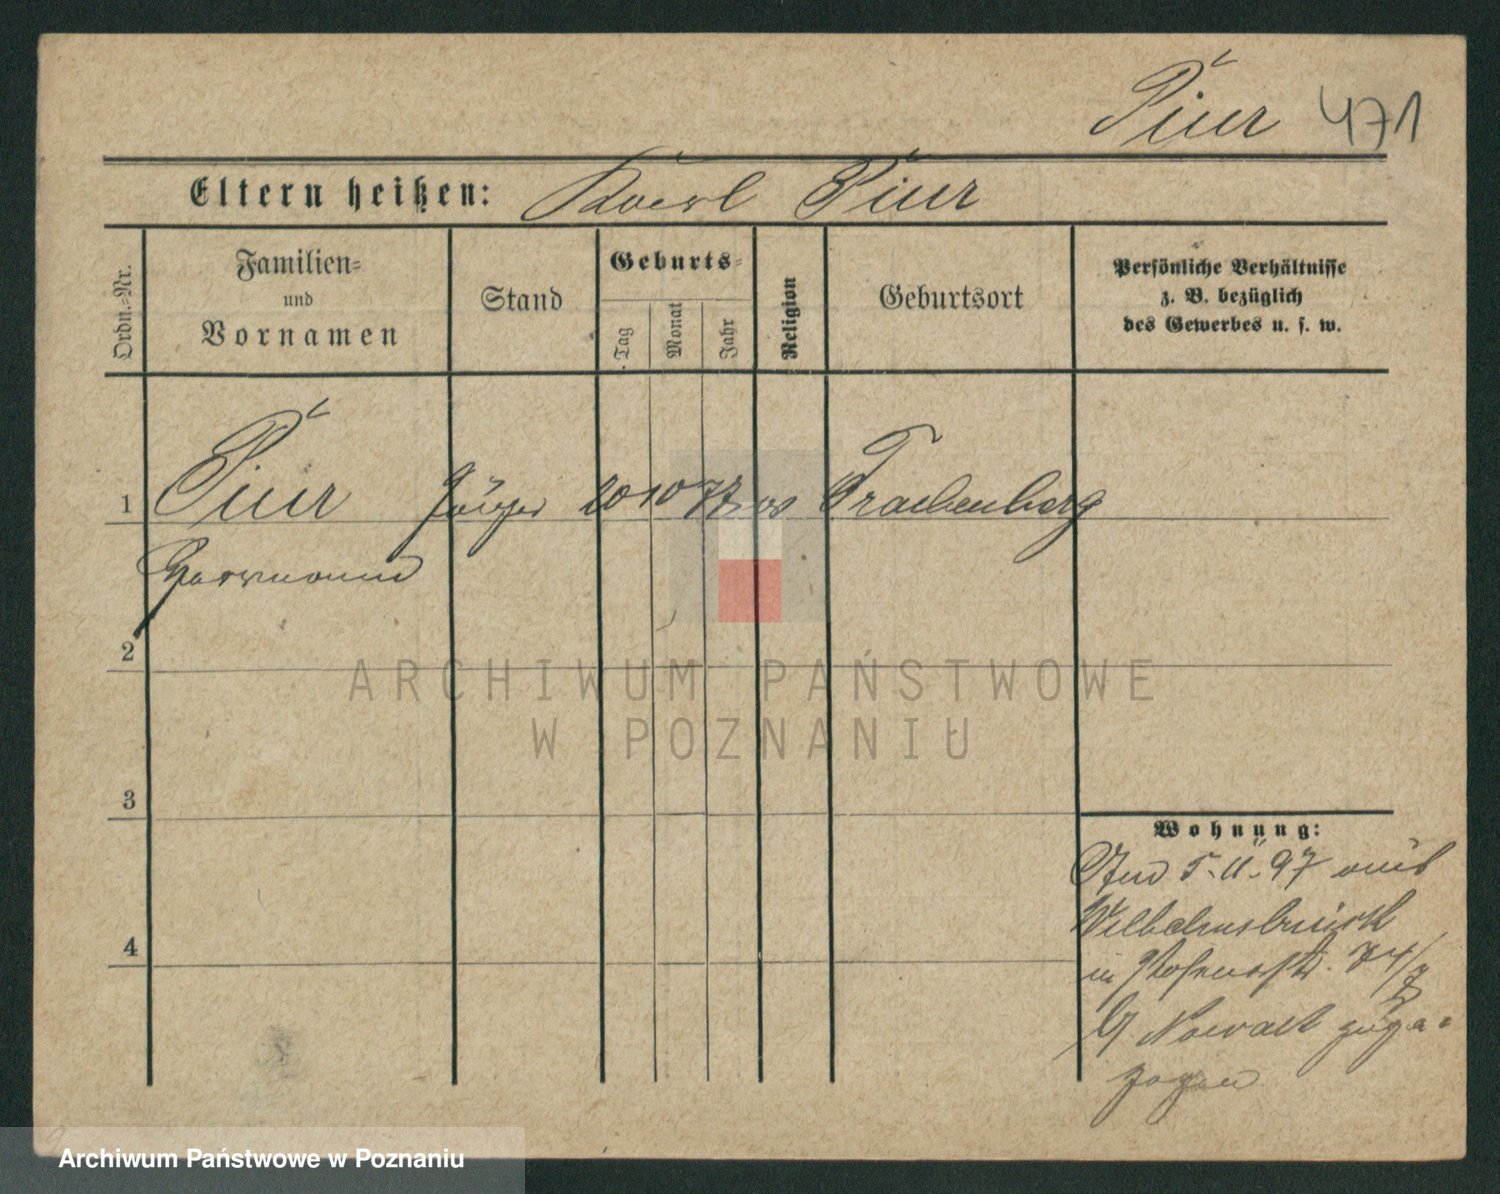 Piur 471
Eltern heißen: Karl Piur
Ordn.-Nr.
Familien-
und
Vornamen
Stand
Geburts-
Tag
Monat
Jahr
Religion
Geburtsort
Persönliche Verhältnisse
z. B. bezüglich
des Gewerbes u. s. w.
1 Piur Jäger 20 10 77 Trachenberg
Herrmann
2
3
4
Wohnung:
5.11.97 aus
Wilhelmsbrück
in 74/7
zuge-
zogen
ARCHIWUM PAŃSTWOWE
W POZNANIU
Archiwum Państwowe w Poznaniu